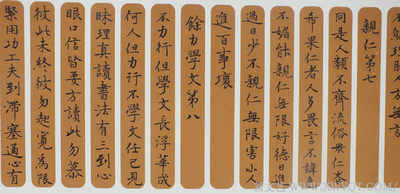 理服人方
親仁第七
同是人類不齊流俗眾仁者
希果仁者人多畏言不諱色
不媚能親仁無限好德日進
過日少不親仁無限害小人
進百事壞
餘力學文第八
不力行但學文長浮華成
何人但力行不學文任己見
昧理真讀書法有三到心
眼口信皆要方讀此勿慕
彼此未終彼勿起寬為限
緊用功工夫到滯塞通心有